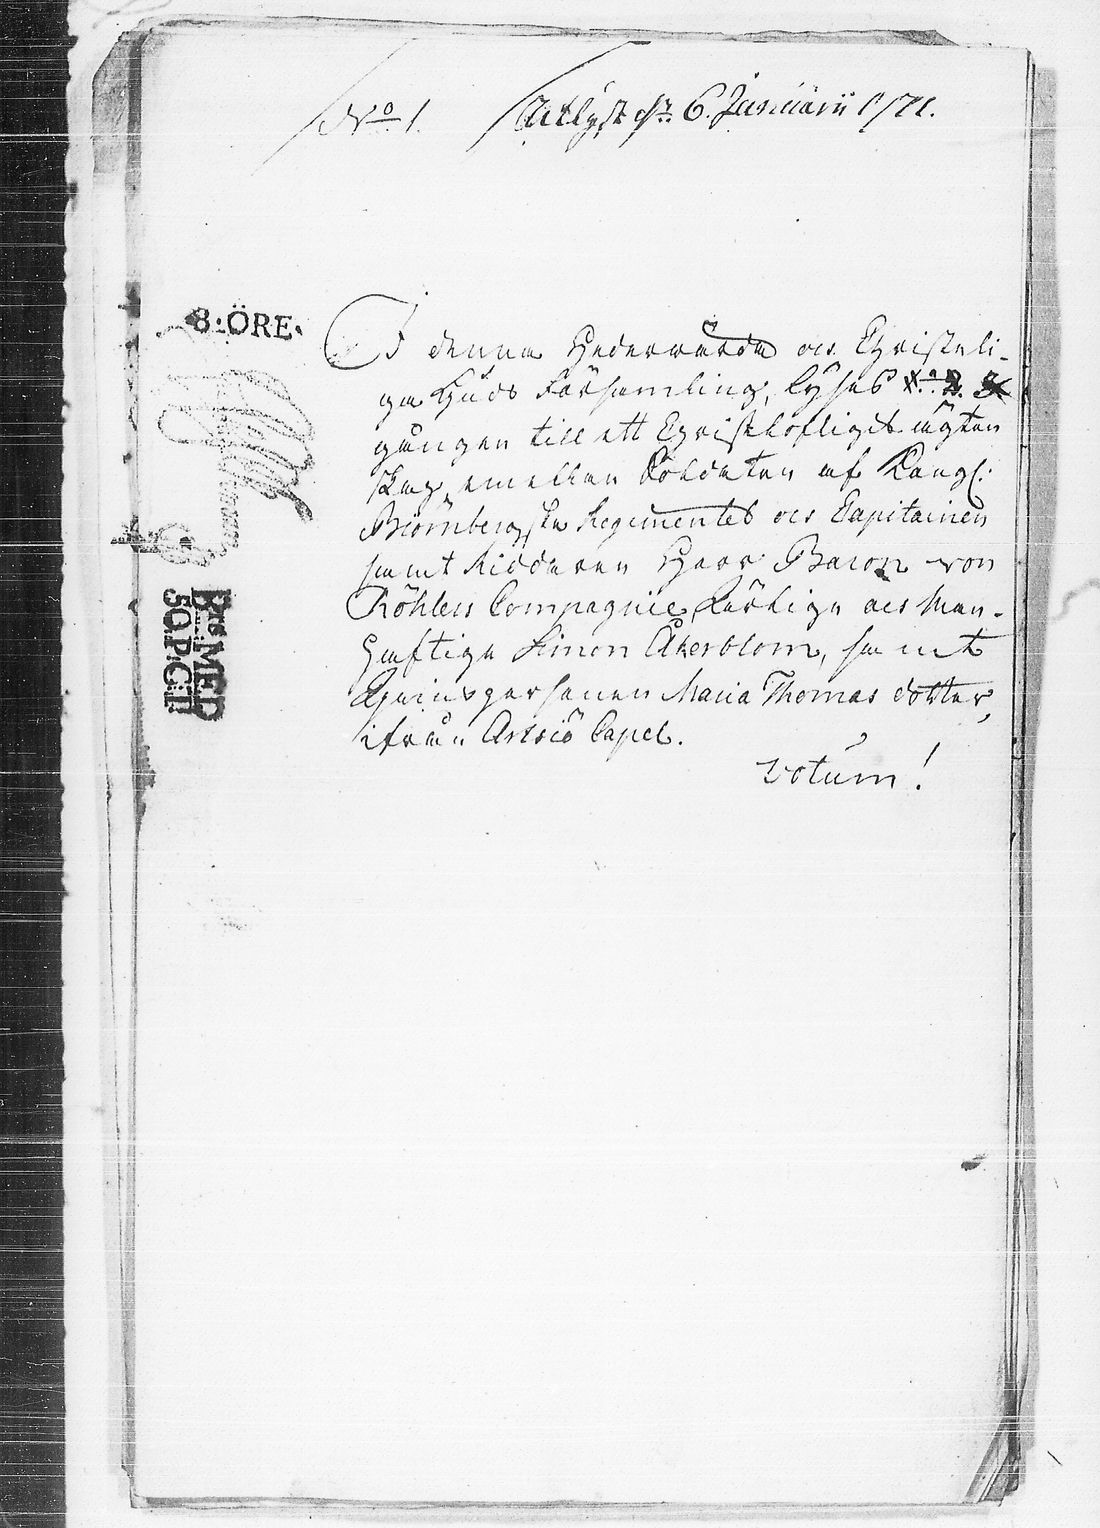 No 1. Utlyst d. 6. Januarii 1771.
8: ÖRE.
I denna Hedervärda och Christeli-
ga Guds Församling, lyses 1.a 2. 3.
gången till ett Christlofligit ägten
skap, emellan Soldaten af Kongl:
Björneborgska Regimentet och Capitainen
samt Ridderen Herr Baron von
Köhlers Compagnie, Ärlige och Man-
haftige Simon Åkerblom, samt
Qvinspersonen Maria Thomas dotter,
ifrån Artsiö Capel.
Votum!
MED
50 P:CT